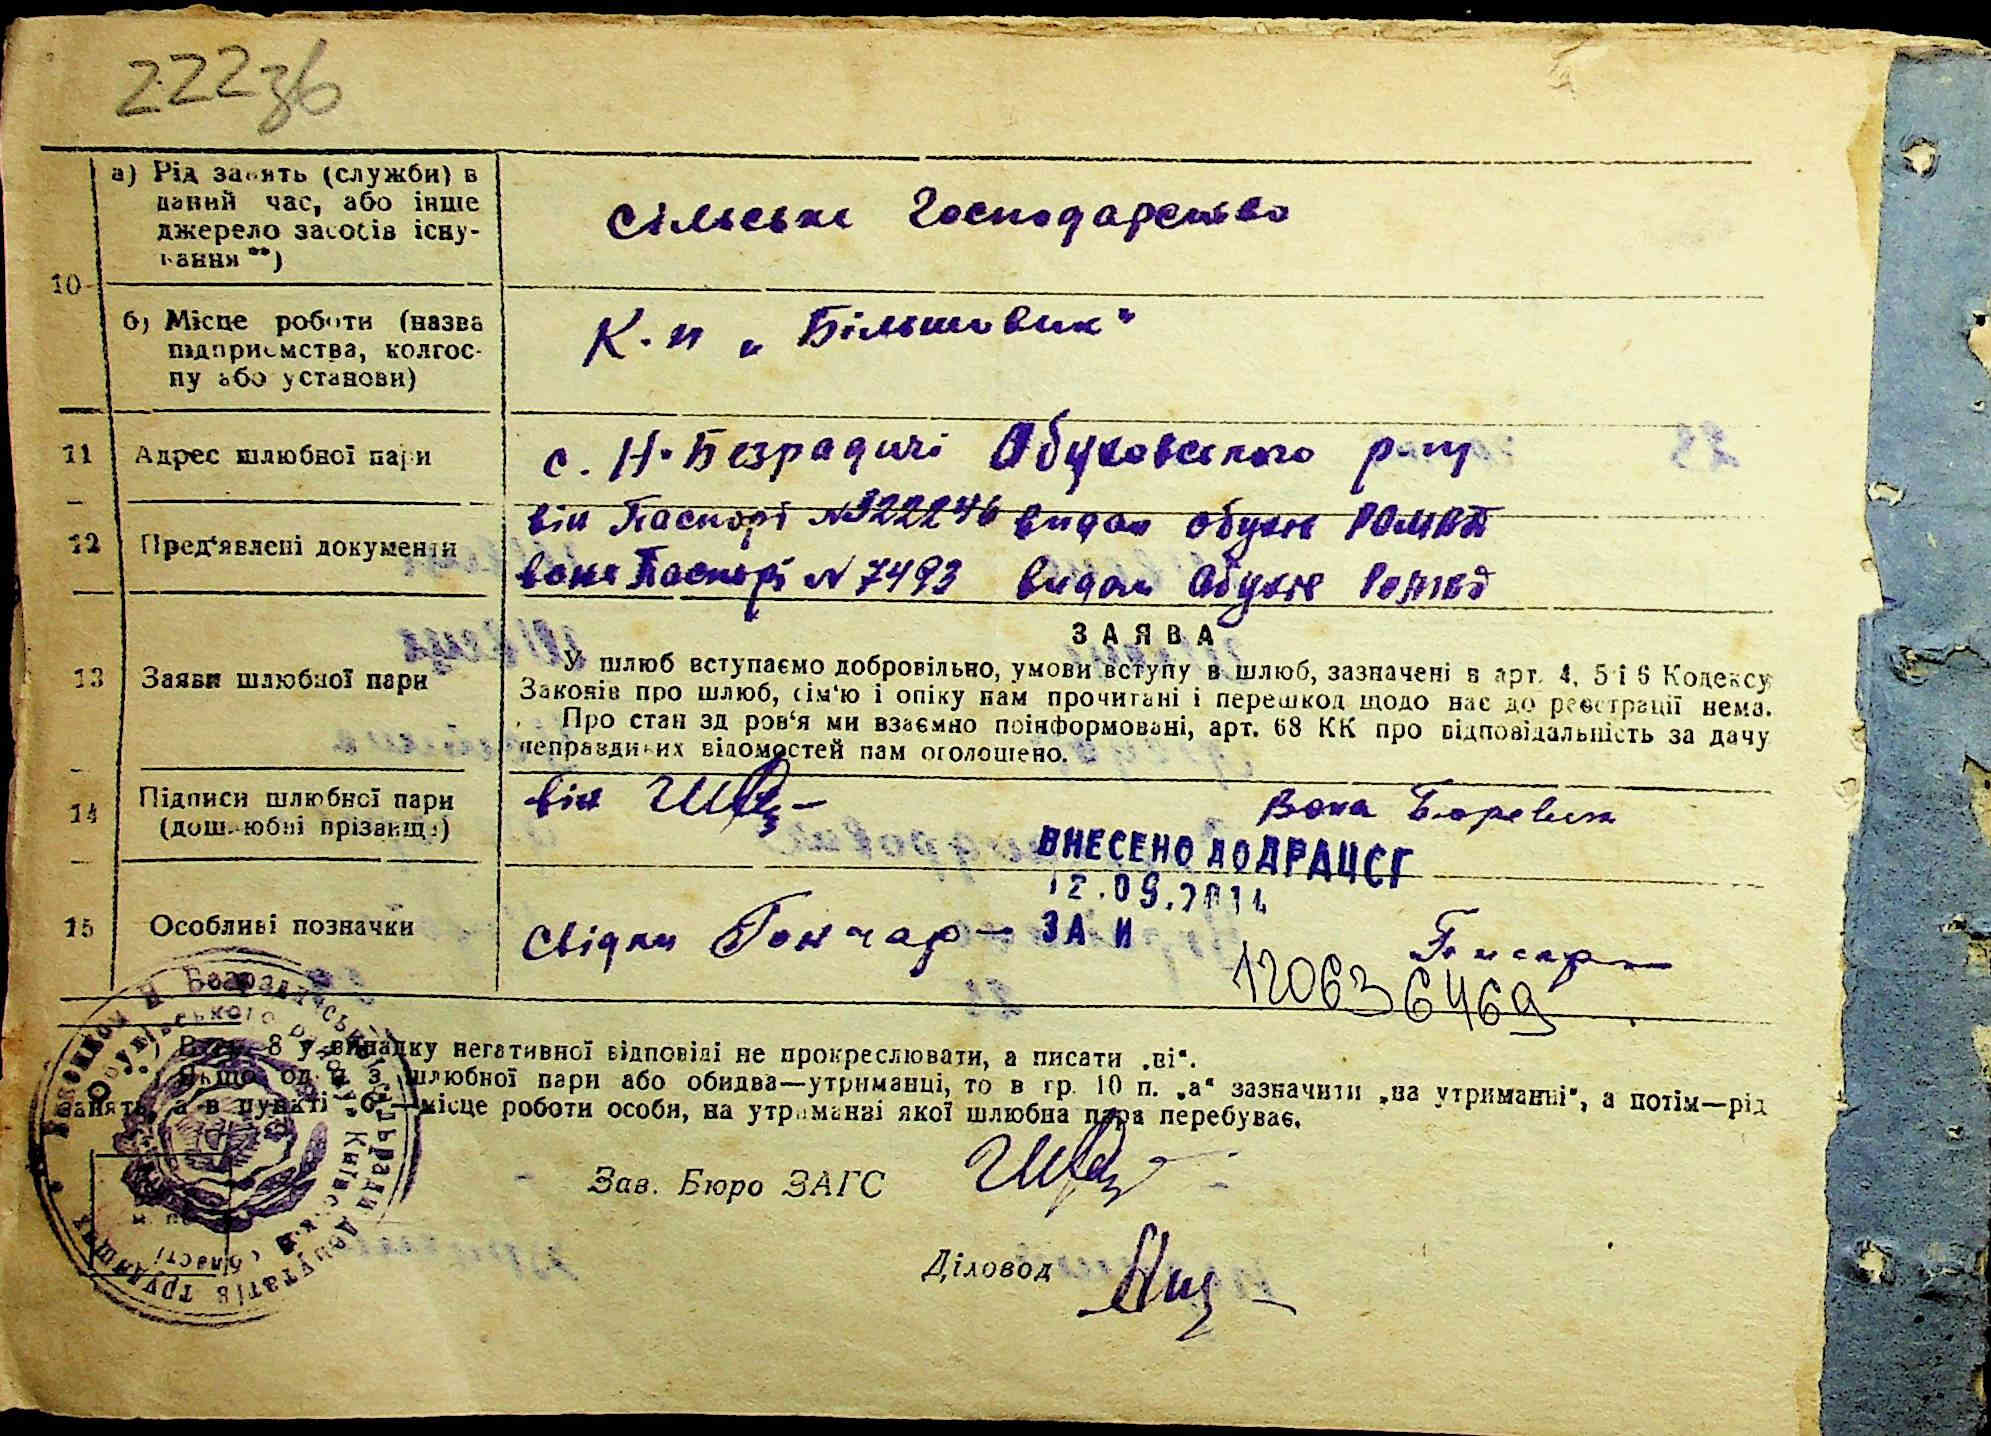 222зб
10
а) Рід занять (служби) в
даний час, або інше
джерело засобів існу-
вання **)
Сільське господарство
б) Місце роботи (назва
підприємства, колгос-
пу або установи)
К-п „Більшовик“
11 Адрес шлюбної пари
с. Н-Безрадичі Обуховського р-ну
12 Пред'явлені документи
він Паспорт № 322246 видан Обухів
вона Паспорт № 7493 видан Обухів
13 Заяви шлюбної пари
ЗАЯВА
У шлюб вступаємо добровільно, умови вступу в шлюб, зазначені в арт. 4, 5 і 6 Кодексу
Законів про шлюб, сім'ю і опіку нам прочитані і перешкод щодо нас до реєстрації нема.
Про стан здоров'я ми взаємно поінформовані, арт. 68 КК про відповідальність за дачу
неправдивих відомостей нам оголошено.
14 Підписи шлюбної пари
(дошлюбні прізвища)
він
Вона
ВНЕСЕНО ДО ДРАЦСГ
12.09.2014
ЗА N
120636469
15 Особливі позначки
Свідки Гончар
Писар
*) В гр. 8 у випадку негативної відповіді не прокреслювати, а писати „ні“.
**) Якщо один з шлюбної пари або обидва—утриманці, то в гр. 10 п. „а“ зазначити „на утриманні“, а потім—рід
занять, а в пункті „б“—місце роботи особи, на утриманні якої шлюбна пара перебуває.
Зав. Бюро ЗАГС
Діловод